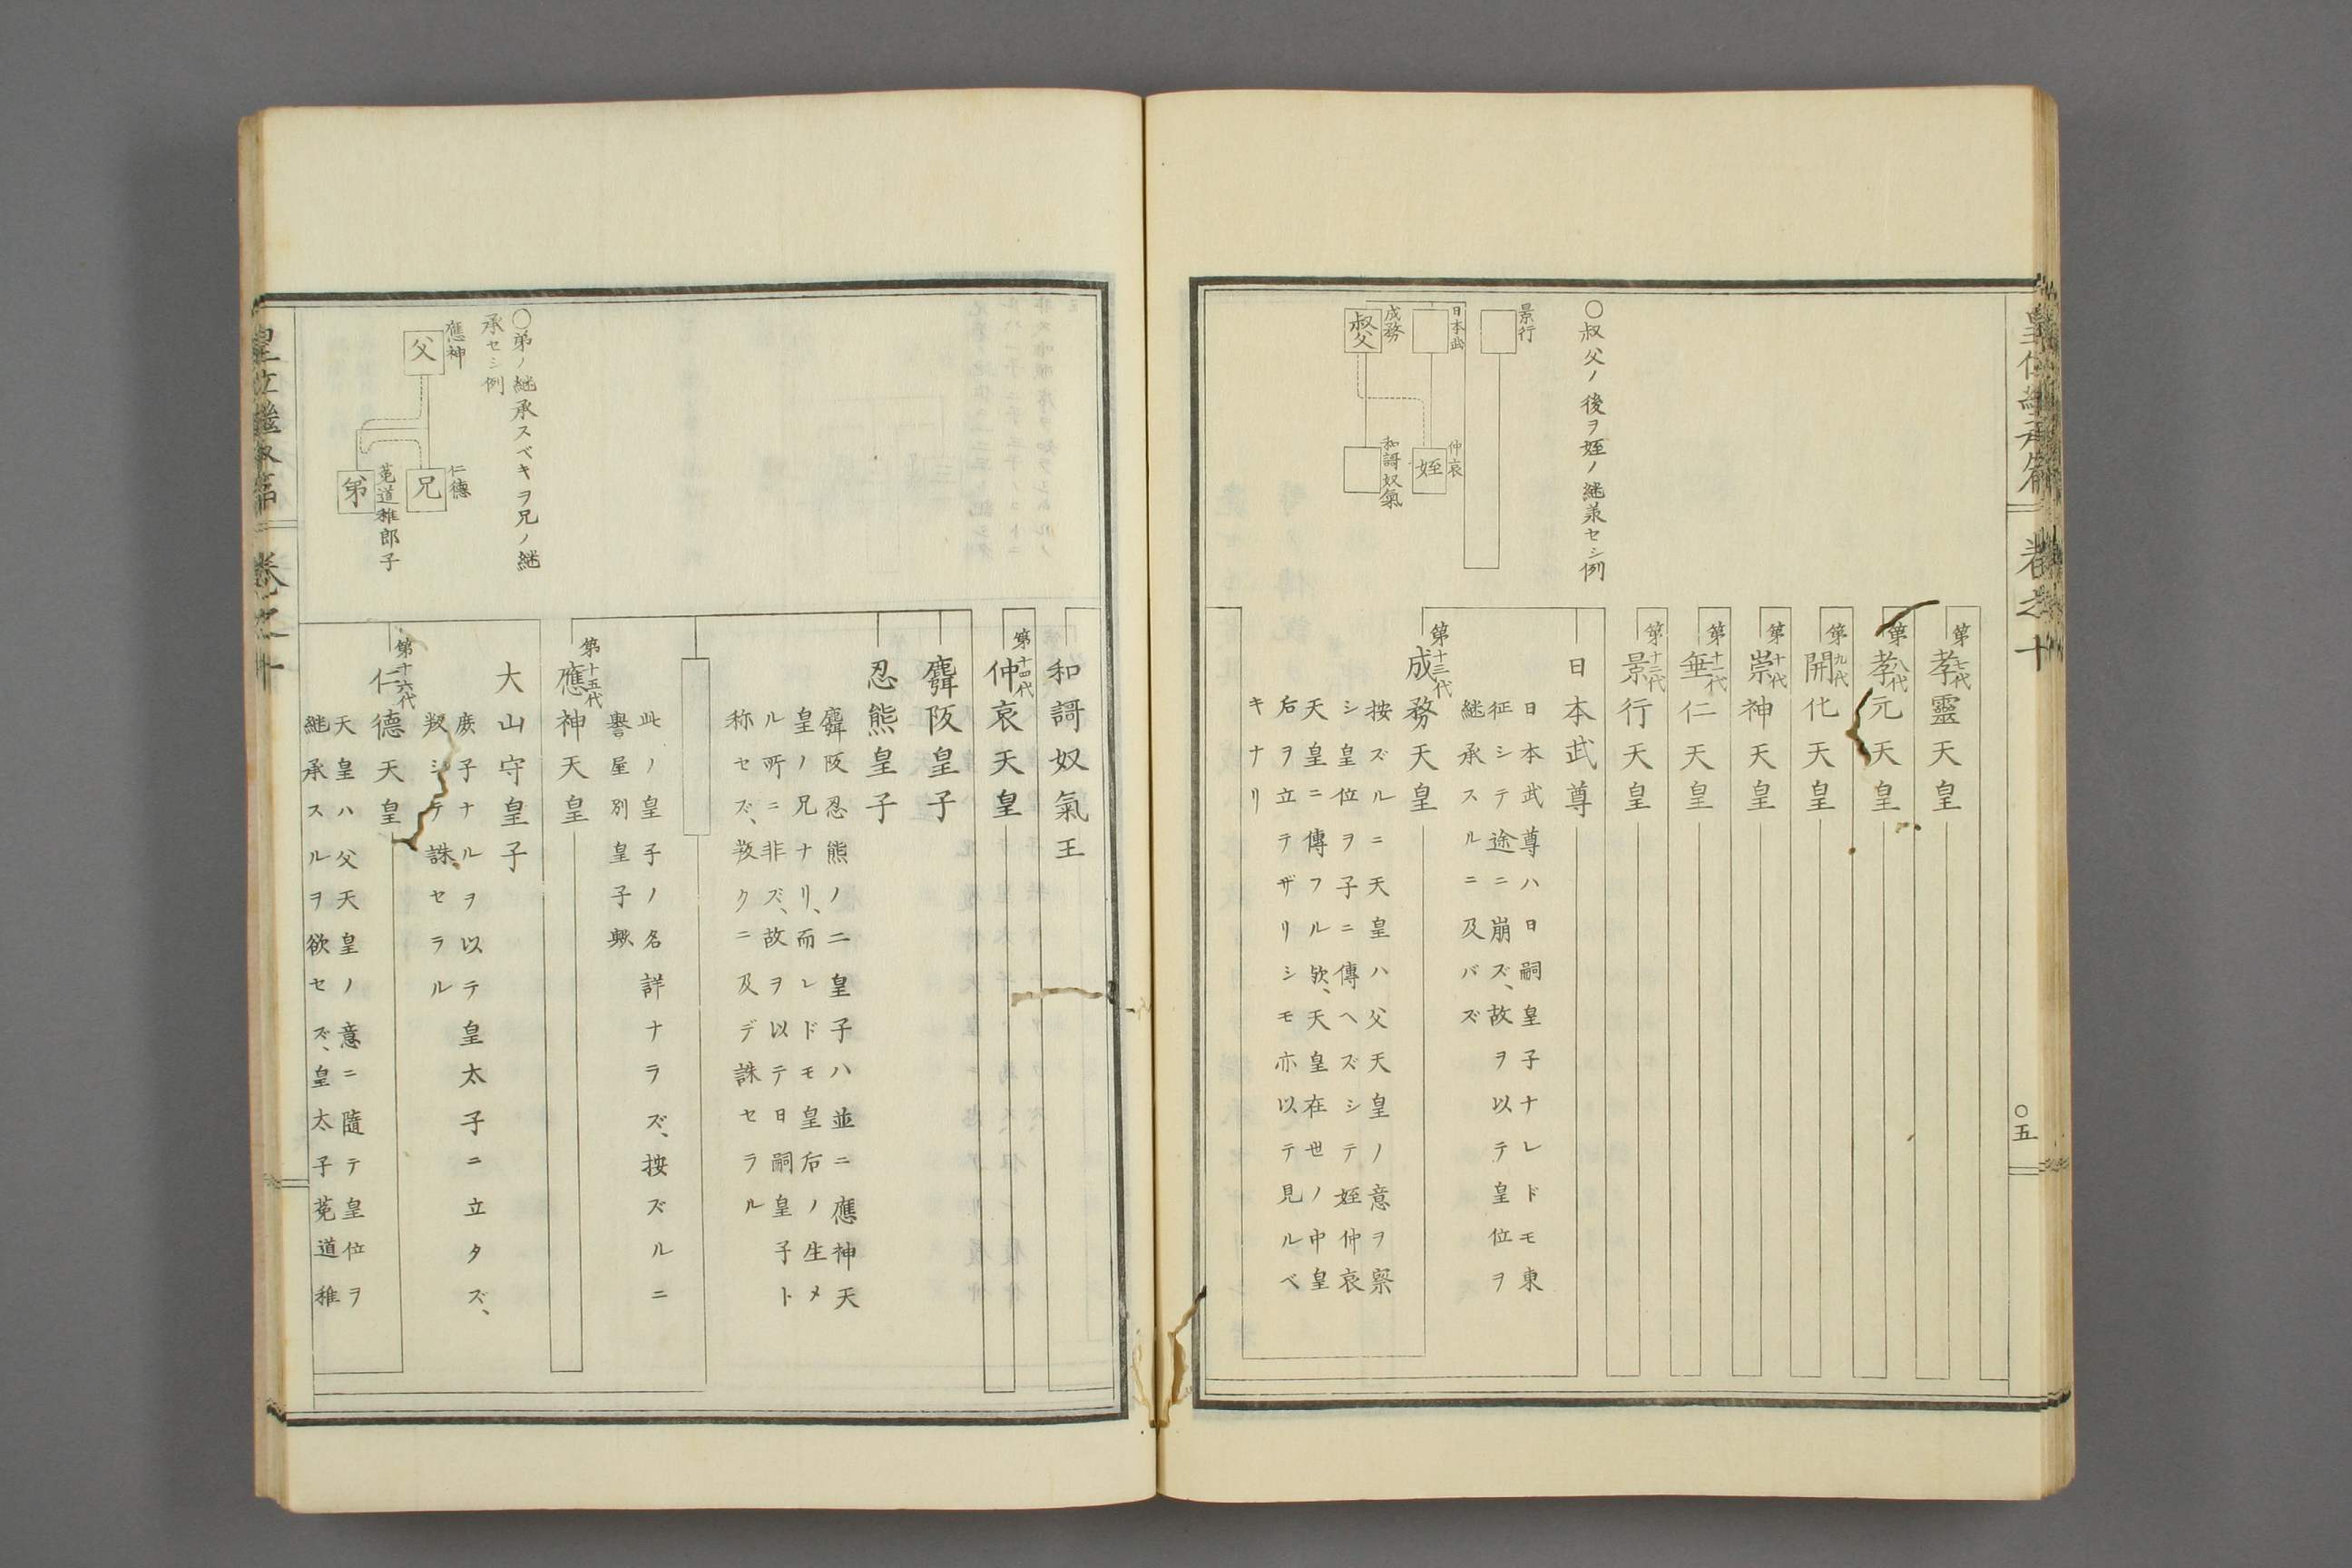 皇位繼承篇 卷之十
○五
○叔父ノ後ヲ姪ノ継承セシ例
景行
日本武
成務
叔父
仲哀
姪
和謌奴氣
第七代
孝靈天皇
第八代
孝元天皇
第九代
開化天皇
第十代
崇神天皇
第十一代
垂仁天皇
第十二代
景行天皇
日本武尊
日本武尊ハ日嗣皇子ナレドモ東
征シテ途ニ崩ズ、故ヲ以テ皇位ヲ
継承スルニ及バズ
第十三代
成務天皇
按ズルニ天皇ハ父天皇ノ意ヲ察
シ皇位ヲ子ニ傳ヘズシテ姪仲哀
天皇ニ傳フル欤、天皇在世ノ中皇
后ヲ立テザリシモ亦以テ見ルベ
キナリ
○弟ノ継承スベキヲ兄ノ継
承セシ例
應神
父
仁德
兄
菟道稚郎子
弟
和謌奴氣王
第十四代
仲哀天皇
麛阪皇子
忍熊皇子
麛阪忍熊ノ二皇子ハ並ニ應神天
皇ノ兄ナリ、而レドモ皇后ノ生メ
ル所ニ非ズ、故ヲ以テ日嗣皇子ト
称セズ、叛クニ及デ誅セラル
此ノ皇子ノ名詳ナラズ、按ズルニ
譽屋別皇子歟
第十五代
應神天皇
大山守皇子
庶子ナルヲ以テ皇太子ニ立タズ、
叛シテ誅セラル
第十六代
仁德天皇
天皇ハ父天皇ノ意ニ隨テ皇位ヲ
継承スルヲ欲セズ、皇太子菟道稚
皇位繼承篇 卷之十